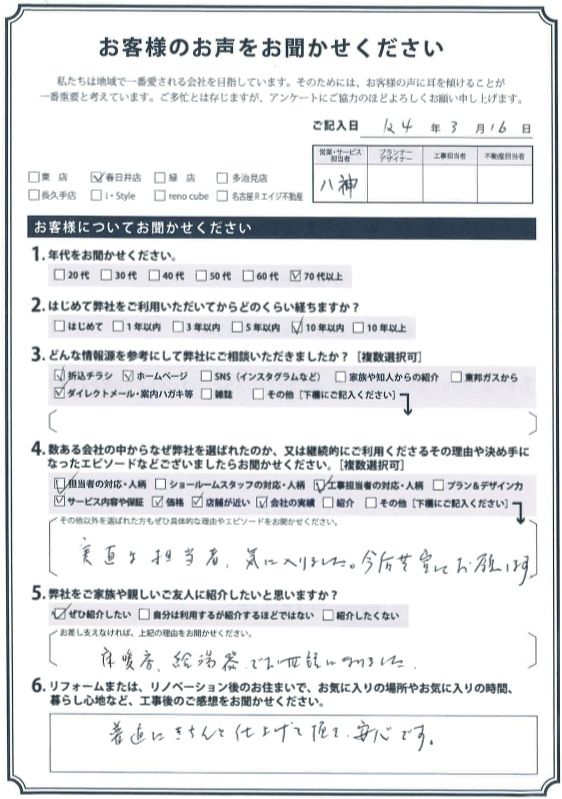 お客様のお声をお聞かせください
私たちは地域で一番愛される会社を目指しています。そのためには、お客様の声に耳を傾けることが
一番重要と考えています。ご多忙とは存じますが、アンケートにご協力のほどよろしくお願い申し上げます。
ご記入日 R4 年 3 月 16 日
営業・サービス担当者 プランナーデザイナー 工事担当者 不動産担当者
八神
□東 店 ☑春日井店 □緑 店 □多治見店
□長久手店 □i・Style □reno cube □名古屋Rエイジ不動産
お客様についてお聞かせください
1. 年代をお聞かせください。
□20代 □30代 □40代 □50代 □60代 ☑70代以上
2. はじめて弊社をご利用いただいてからどのくらい経ちますか?
□はじめて □1年以内 □3年以内 □5年以内 ☑10年以内 □10年以上
3. どんな情報源を参考にして弊社にご相談いただきましたか?[複数選択可]
☑折込チラシ ☑ホームページ □SNS(インスタグラムなど) □家族や知人からの紹介 □東邦ガスから
☑ダイレクトメール・案内ハガキ等 □雑誌 □その他[下欄にご記入ください]
4. 数ある会社の中からなぜ弊社を選ばれたのか、又は継続的にご利用くださるその理由や決め手に
なったエピソードなどございましたらお聞かせください。[複数選択可]
☑担当者の対応・人柄 □ショールームスタッフの対応・人柄 ☑工事担当者の対応・人柄 □プラン&デザイン力
☑サービス内容や保証 ☑価格 ☑店舗が近い ☑会社の実績 □紹介 □その他[下欄にご記入ください]
その他以外を選ばれた方もぜひ具体的な理由やエピソードをお聞かせください。
実直な担当者、気に入りました。今后共宜しくお願います
5. 弊社をご家族や親しいご友人に紹介したいと思いますか?
☑ぜひ紹介したい □自分は利用するが紹介するほどではない □紹介したくない
お差し支えなければ、上記の理由をお聞かせください。
床暖房、給湯器でお世話になりました。
6. リフォームまたは、リノベーション後のお住まいで、お気に入りの場所やお気に入りの時間、
暮らし心地など、工事後のご感想をお聞かせください。
きちんと仕上げて頂て、安心です。